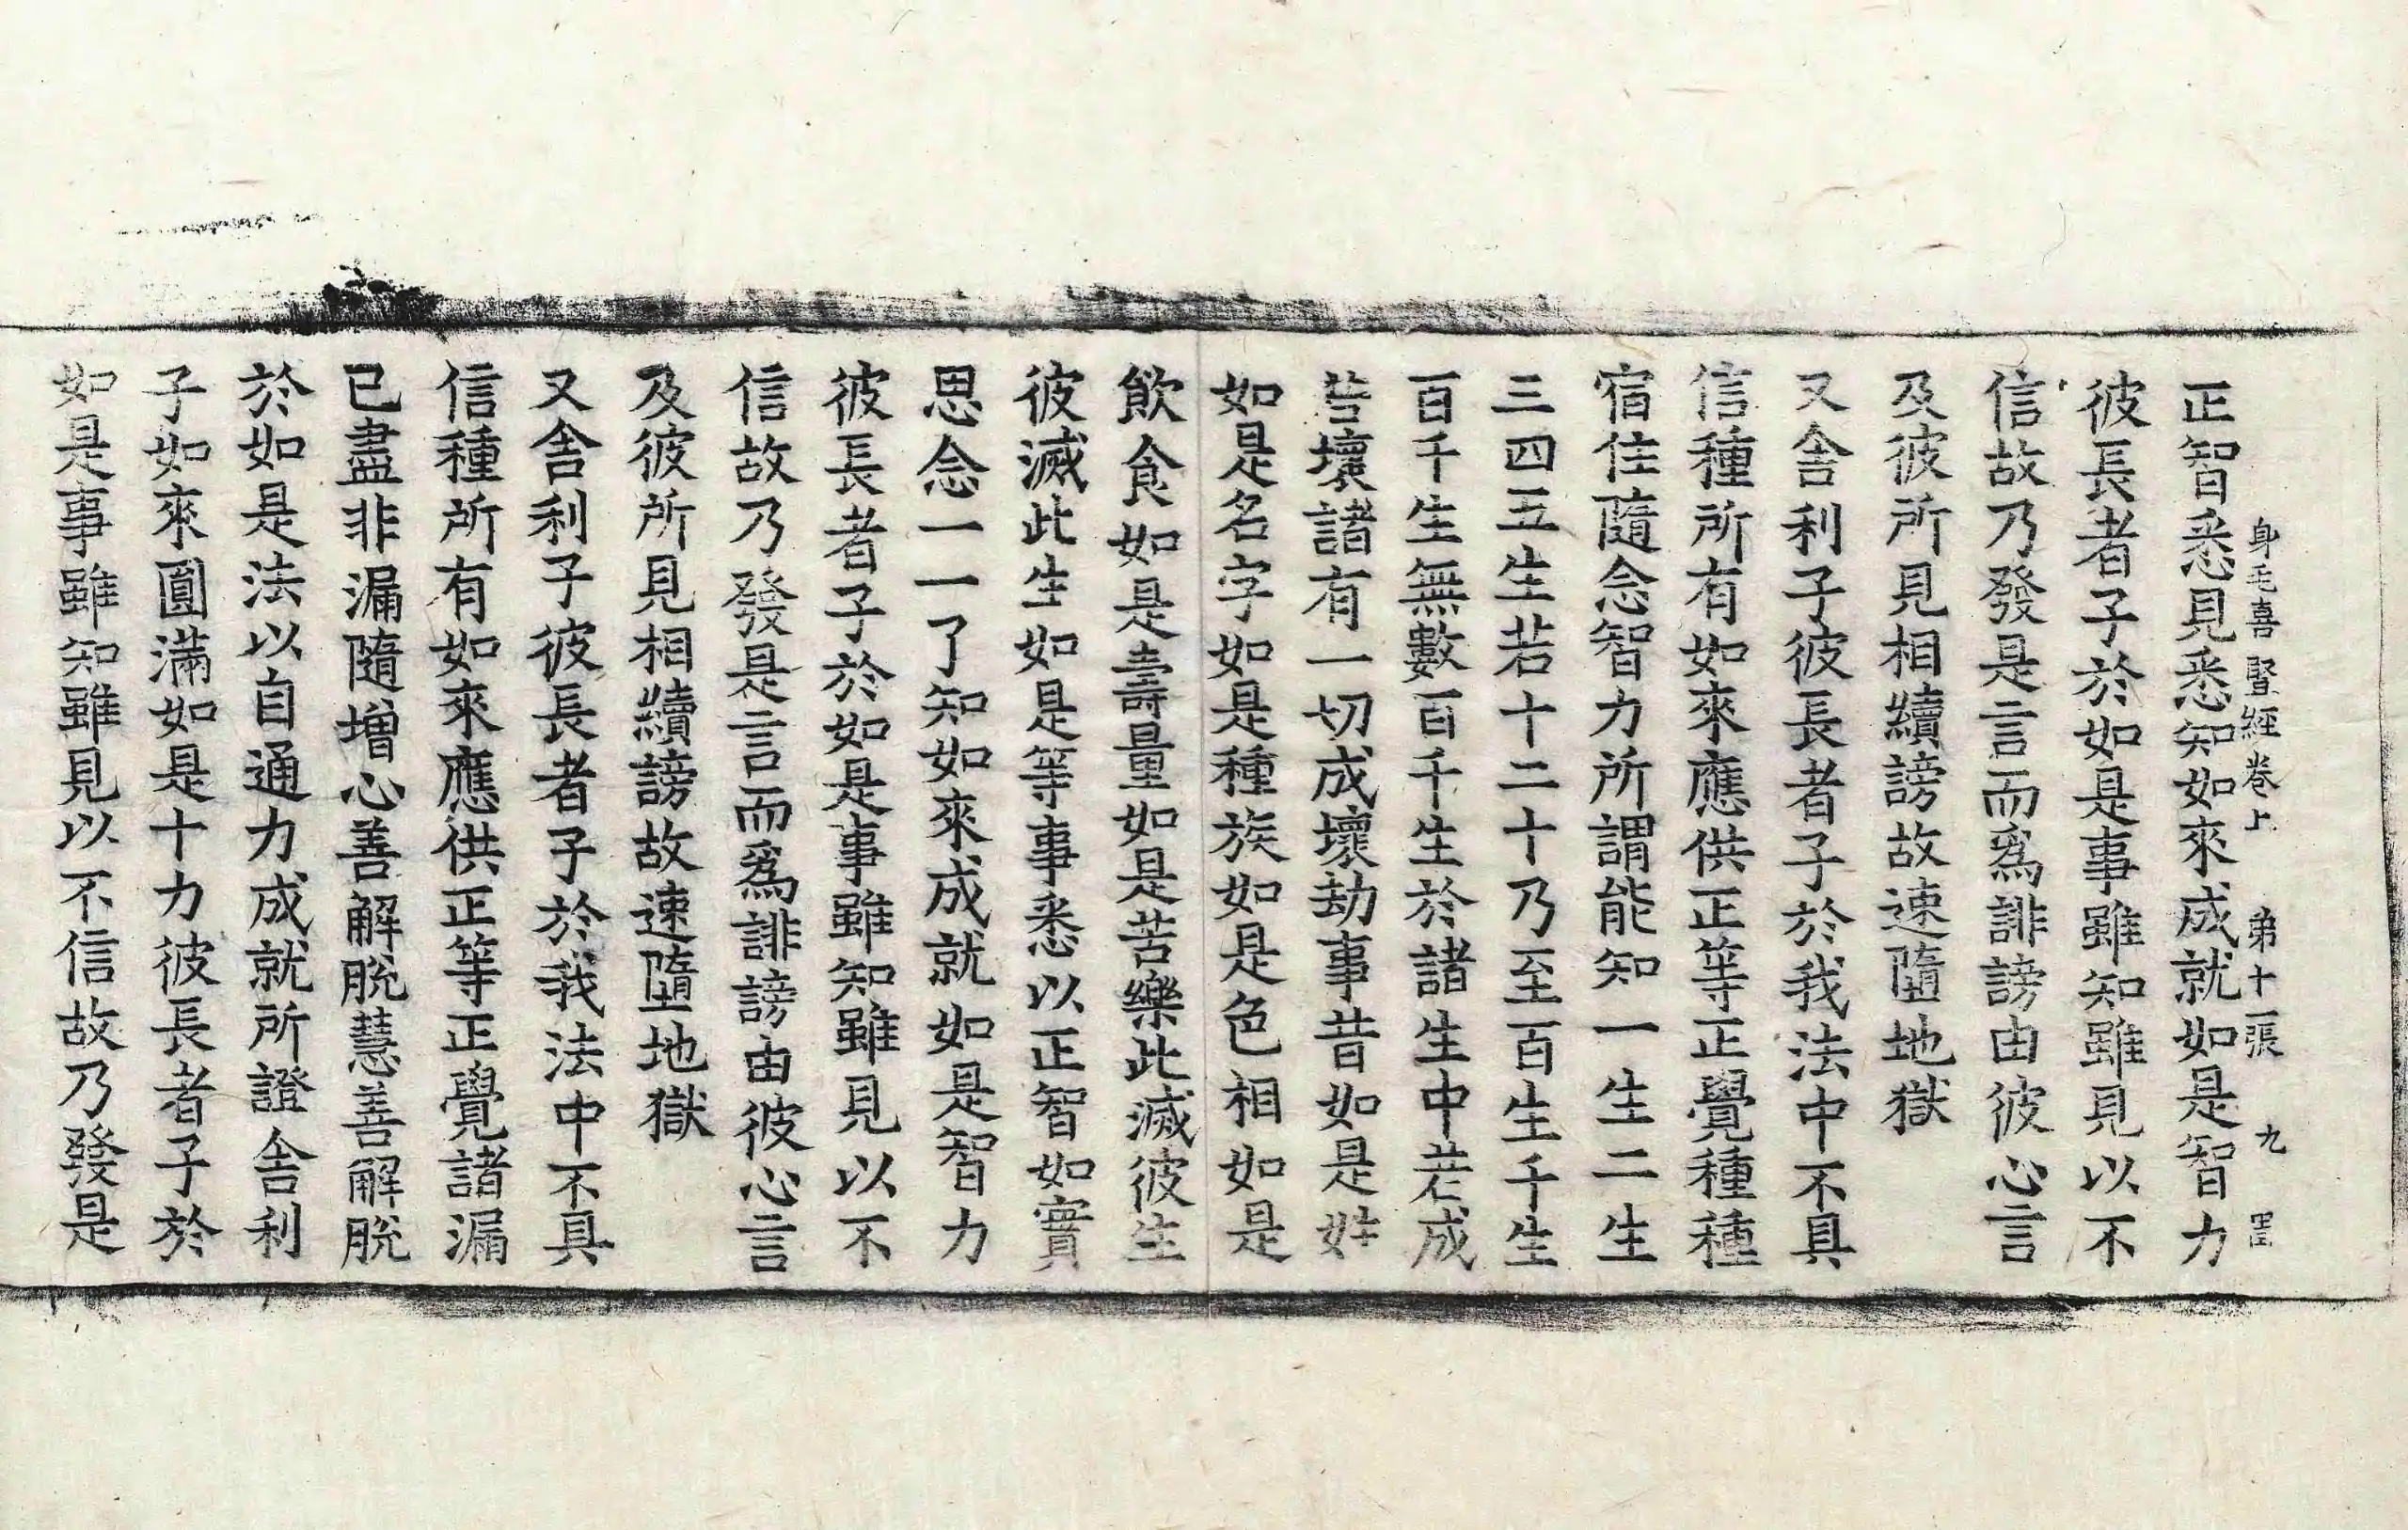 身毛喜竪經卷上 弟十一張 九 罡
正智悉見悉知如來成就如是智力
彼長者子於如是事雖知雖見以不
信故乃發是言而爲誹謗由彼心言
及彼所見相續謗故速墮地獄
又舍利子彼長者子於我法中不具
信種所有如來應供正等正覺種種
宿住隨念智力所謂能知一生二生
三四五生若十二十乃至百生千生
百千生無數百千生於諸生中若成
若壞諸有一切成壞劫事昔如是姓
如是名字如是種族如是色相如是
飲食如是壽量如是苦樂此滅彼生
彼滅此生如是等事悉以正智如實
思念一一了知如來成就如是智力
彼長者子於如是事雖知雖見以不
信故乃發是言而爲誹謗由彼心言
及彼所見相續謗故速墮地獄
又舍利子彼長者子於我法中不具
信種所有如來應供正等正覺諸漏
已盡非漏隨增心善解脫慧善解脫
於如是法以自通力成就所證舍利
子如來圓滿如是十力彼長者子於
如是事雖知雖見以不信故乃發是